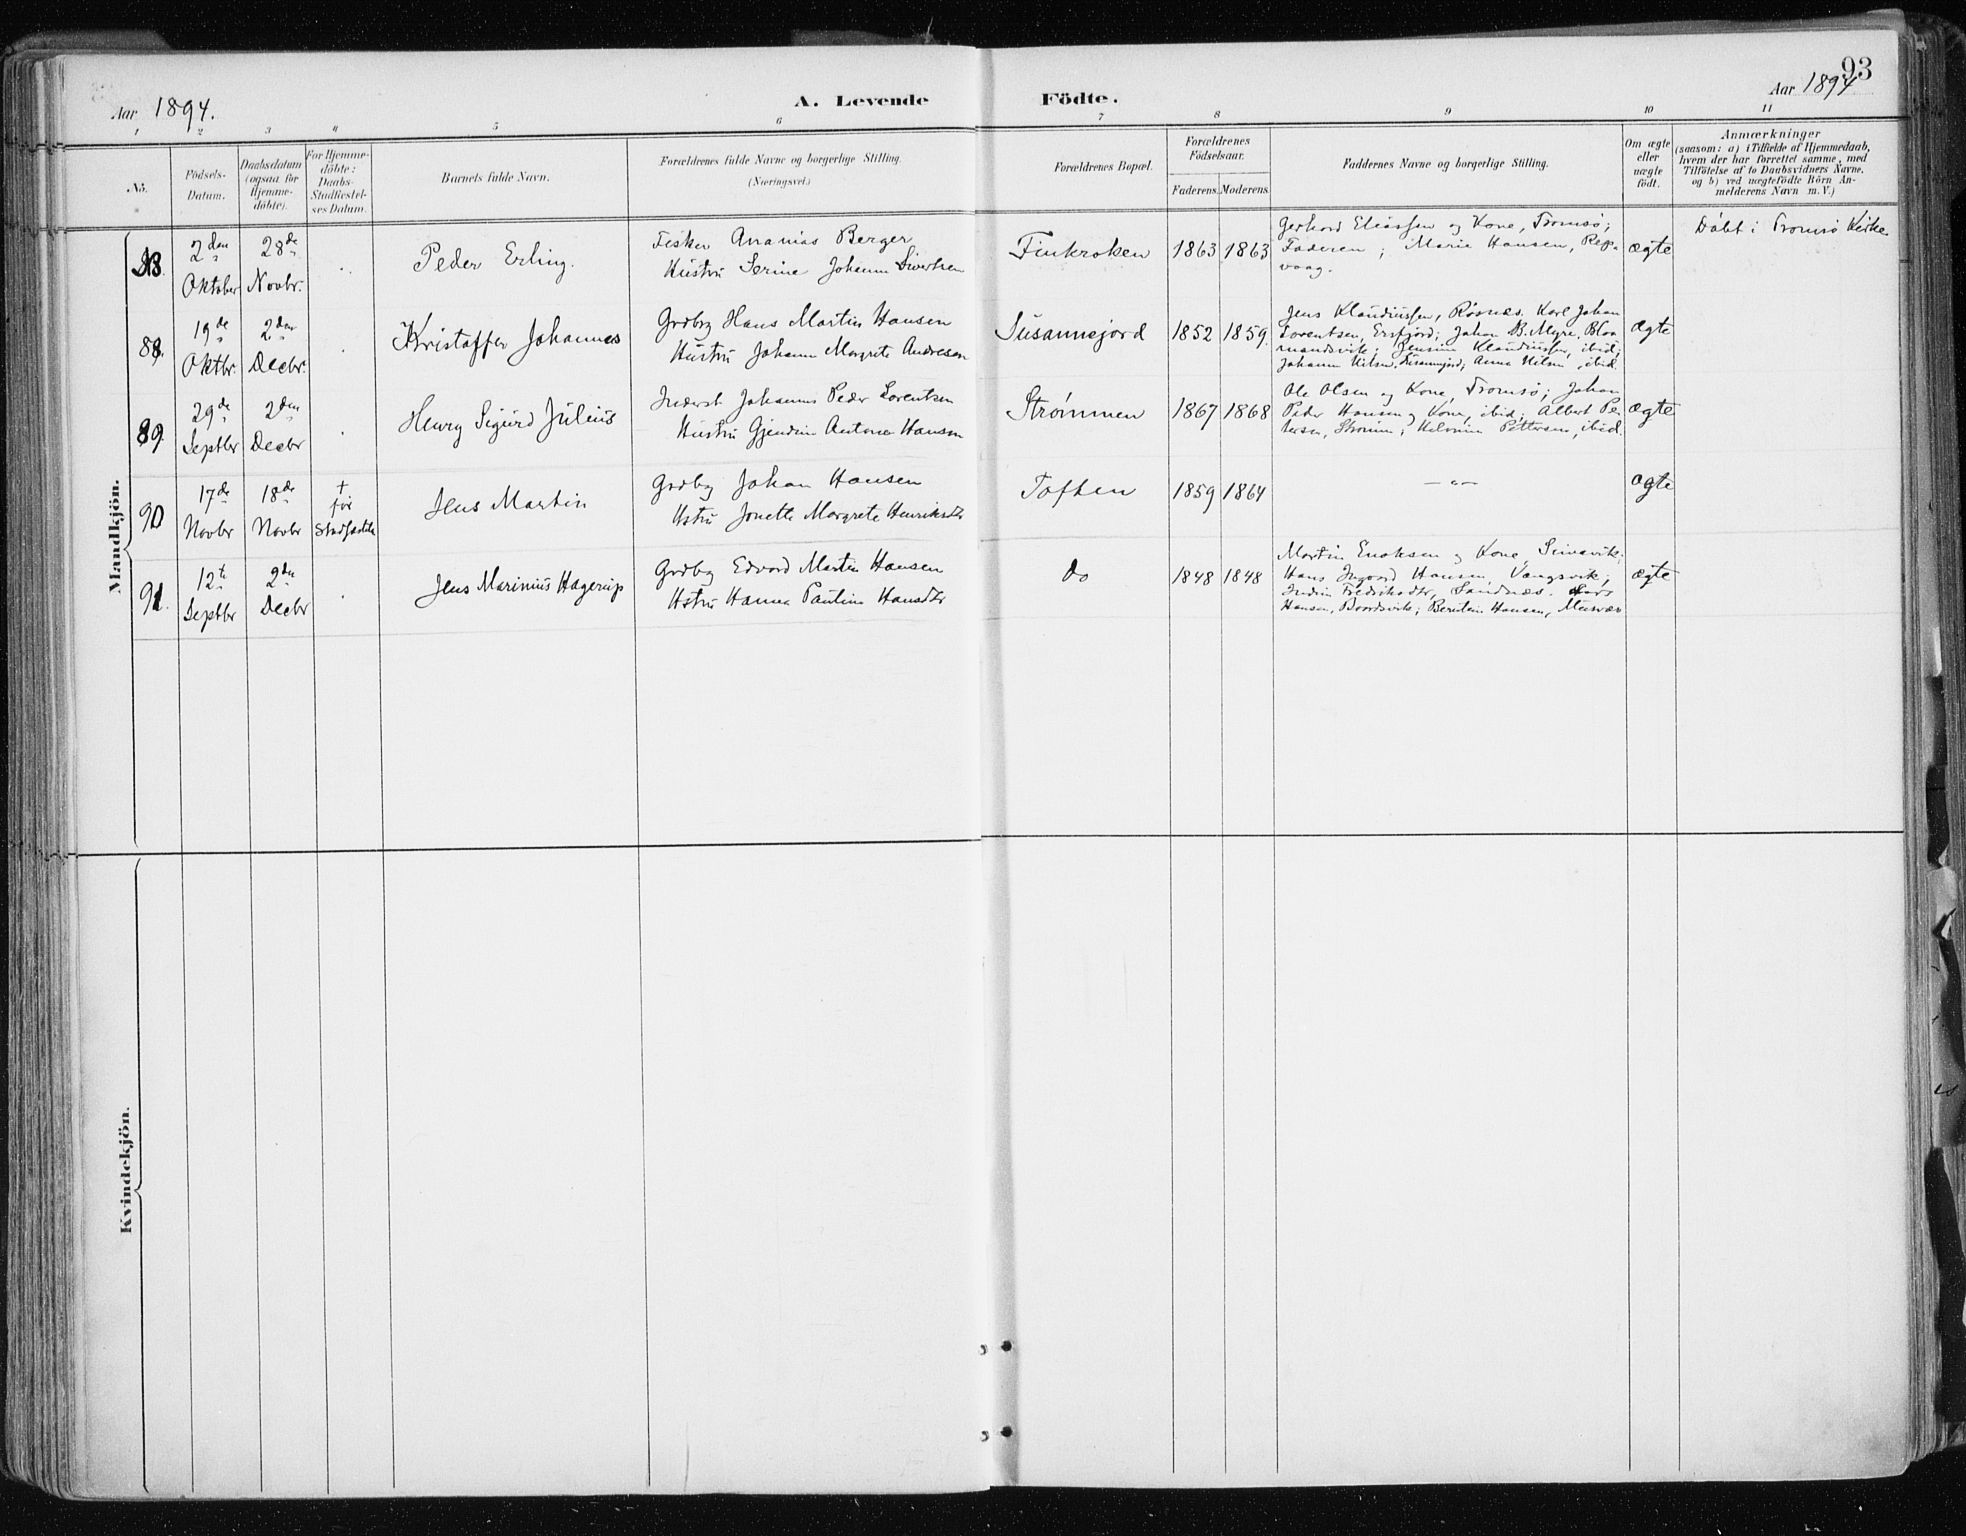 93
Aar 1894.
A. Levende Födte.
Aar 1894
1 2 3 4 5 6 7 8 9 10 11
No.
Födsels-Datum.
Daabsdatum (ogsaa for Hjemme-döbte).
For Hjemme-döbte: Daabs-Stadfæstel-ses Datum.
Barnets fulde Navn.
Forældrenes fulde Navne og borgerlige Stilling.
(Næringsvei.)
Forældrenes Bopæl.
Forældrenes Födselsaar.
Faderens. Moderens.
Faddernes Navne og borgerlige Stilling.
Om ægte eller uægte födt.
Anmærkninger
(saasom: a) i Tilfælde af Hjemmedaab,
hvem der har forrettet samme, med
Tilföielse af to Daabsvidners Navne,
og b) ved uægtefödte Börn An-
melderens Navn m. V.)
Mandkjön.
2den Oktober
28de Novbr.
Peder Erling.
Fisker Ananias Berger
Hustru Serine Johanna Sivertsen
Finkroken
1863 1863
Gerhard Eliassen og Kone, Tromsø;
Faderen; Marie Hansen, Rep-
vaag.
ægte
Döbt i Tromsö Kirke.
88.
19de Oktbr.
2den Decbr.
Kristoffer Johannes
Grdbr Hans Martin Hansen
Hustru Johanna Margrete Andresen
Susannejord
1852 1859.
Jens Klaudiussen, Røvnes. Karl Johan
Lorentsen, Ersfjord; Johan B. Myre, Blaa-
mandsvik; Jensine Klaudiussen, ibid;
Johanna Nilsen, Susannejord; Anna Nilsen, ibid.
ægte
89.
29de Septbr
2den Decbr
Henry Sigurd Julius
Inderst Johannes Peder Lorentsen
Hustru Gjendine Antona Hansen
Strømmen
1867 1868
Ole Olsen og Kone, Tromsø; Johan
Peder Hansen og Kone, ibid; Albert Pe-
tersen, Strømm; Pettersen, ibid.
ægte
90
17de Novbr
18de Novbr
† før Stadfæstelse
Jens Martin
Grdbr Johan Hansen
Hstru Jonette Margrete Henriksdtr
Toften
1859 1864
— " —
ægte
91.
12te Septbr
2den Decbr
Jens Marinius Hagerup
Grdbr Edvard Martin Hansen
Hstru Hanna Pauline Hansdtr
do
1848 1848
Martin Enoksen og Kone, Simavik;
Hans Ingvard Hansen, Vangsvik;
Indine Fredriksdtr, Sandnæs. Lars
Hansen, Baardsvik; Hansen, Musvær
ægte
Kvindekjön.